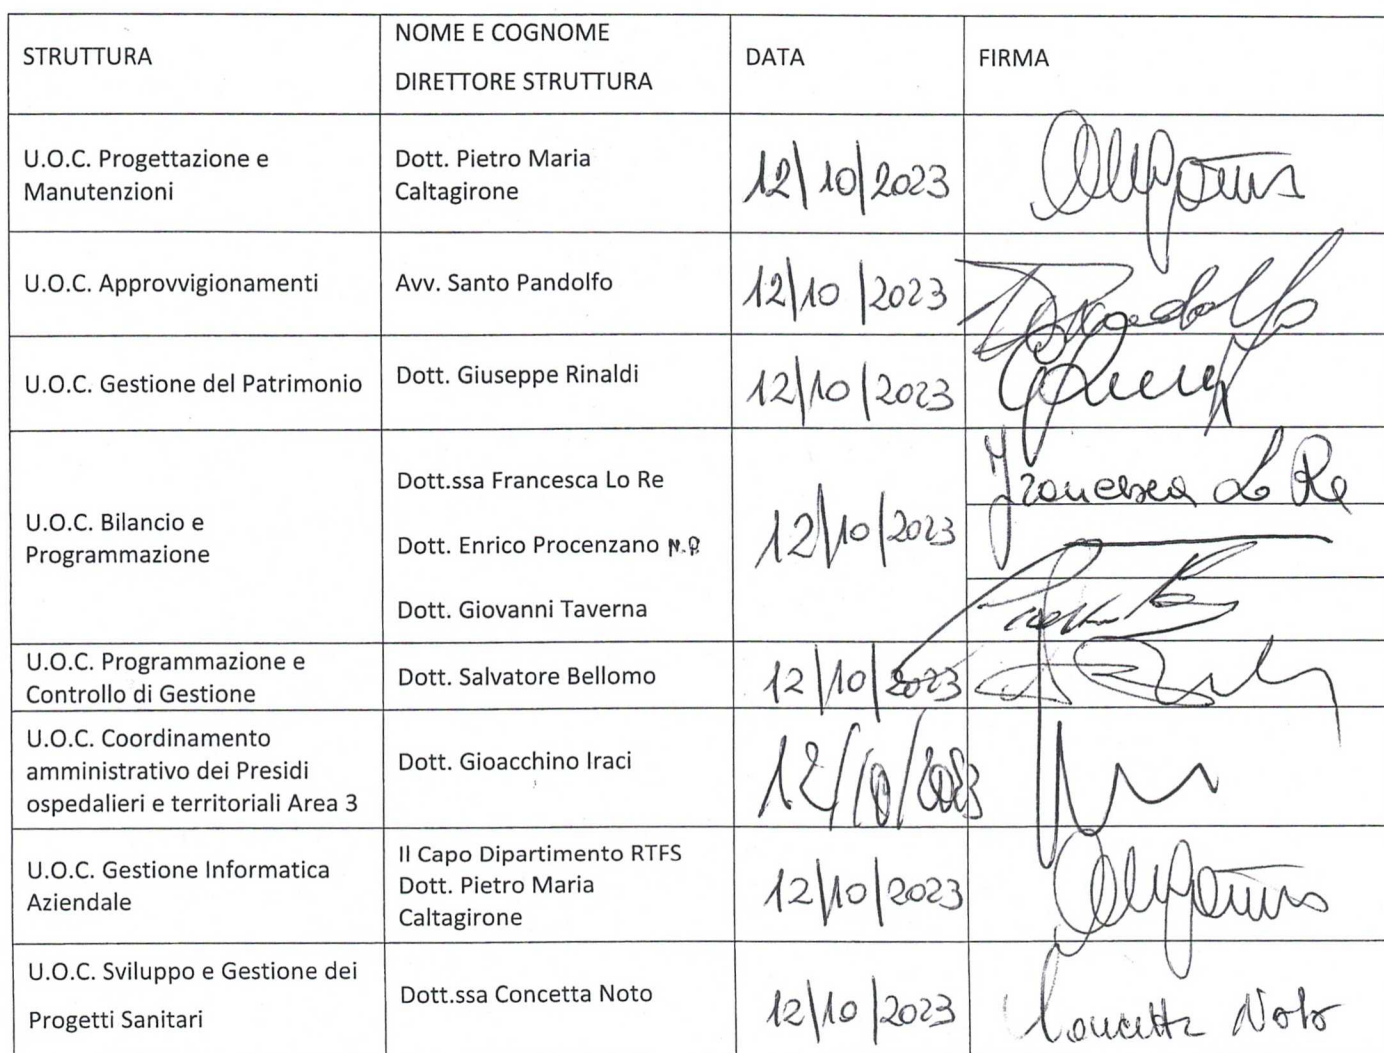 STRUTTURA
NOME E COGNOME
DIRETTORE STRUTTURA
DATA
FIRMA
U.O.C. Progettazione e
Manutenzioni
Dott. Pietro Maria
Caltagirone
12/10/2023
U.O.C. Approvvigionamenti
Avv. Santo Pandolfo
12/10/2023
Pandolfo
U.O.C. Gestione del Patrimonio
Dott. Giuseppe Rinaldi
12/10/2023
U.O.C. Bilancio e
Programmazione
Dott.ssa Francesca Lo Re
Dott. Enrico Procenzano N.P.
Dott. Giovanni Taverna
12/10/2023
Francesca Lo Re
U.O.C. Programmazione e
Controllo di Gestione
Dott. Salvatore Bellomo
12/10/2023
U.O.C. Coordinamento
amministrativo dei Presidi
ospedalieri e territoriali Area 3
Dott. Gioacchino Iraci
12/10/2023
U.O.C. Gestione Informatica
Aziendale
Il Capo Dipartimento RTFS
Dott. Pietro Maria
Caltagirone
12/10/2023
U.O.C. Sviluppo e Gestione dei
Progetti Sanitari
Dott.ssa Concetta Noto
12/10/2023
Concetta Noto